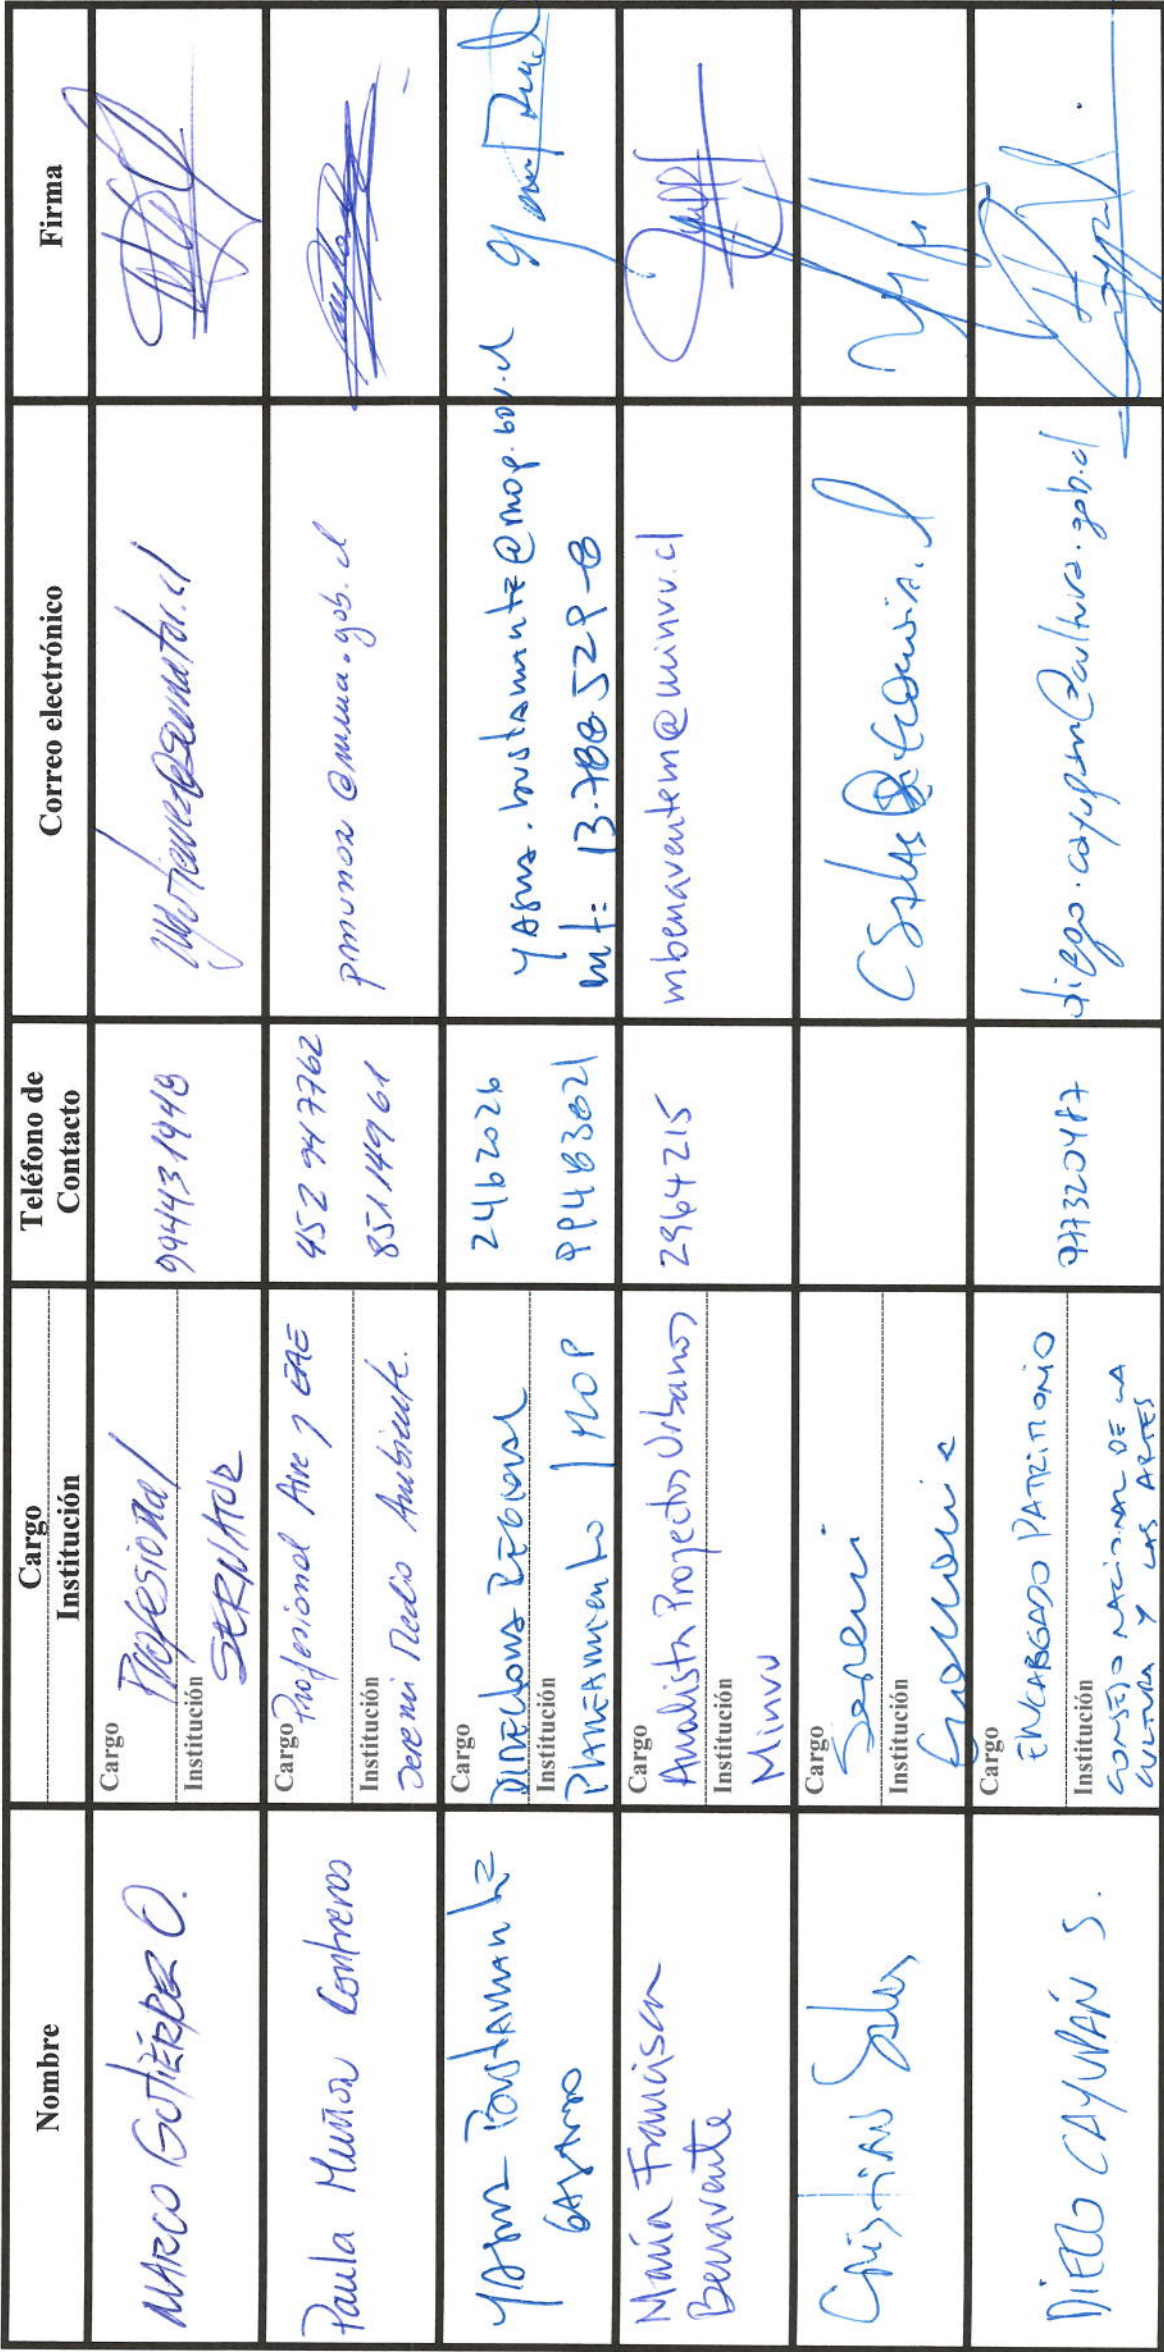 Nombre
Cargo
Institución
Teléfono de
Contacto
Correo electrónico
Firma
MARCO GUTIÉRREZ O.
Cargo
Profesional
Institución
SERNATUR
994431948
Paula Muñoz Contreras
Cargo Profesional Aire y EAE
Institución
Seremi Medio Ambiente.
452 947762
85114961
pmunoz@mma.gob.cl
Bustamante
Cargo
Institución
Planeamiento / MOP
2462026
María Francisca
Benavente
Cargo
Analista Proyectos Urbanos
Institución
Minvu
2964215
mbenaventem@minvu.cl
Cristian Salas
Cargo
Seremi
Institución
Economia
DIEGO CAYUPÁN S.
Cargo
ENCARGADO PATRIMONIO
Institución
CONSEJO NACIONAL DE LA
CULTURA Y LAS ARTES
977320487
diego.cayupan@cultura.gob.cl